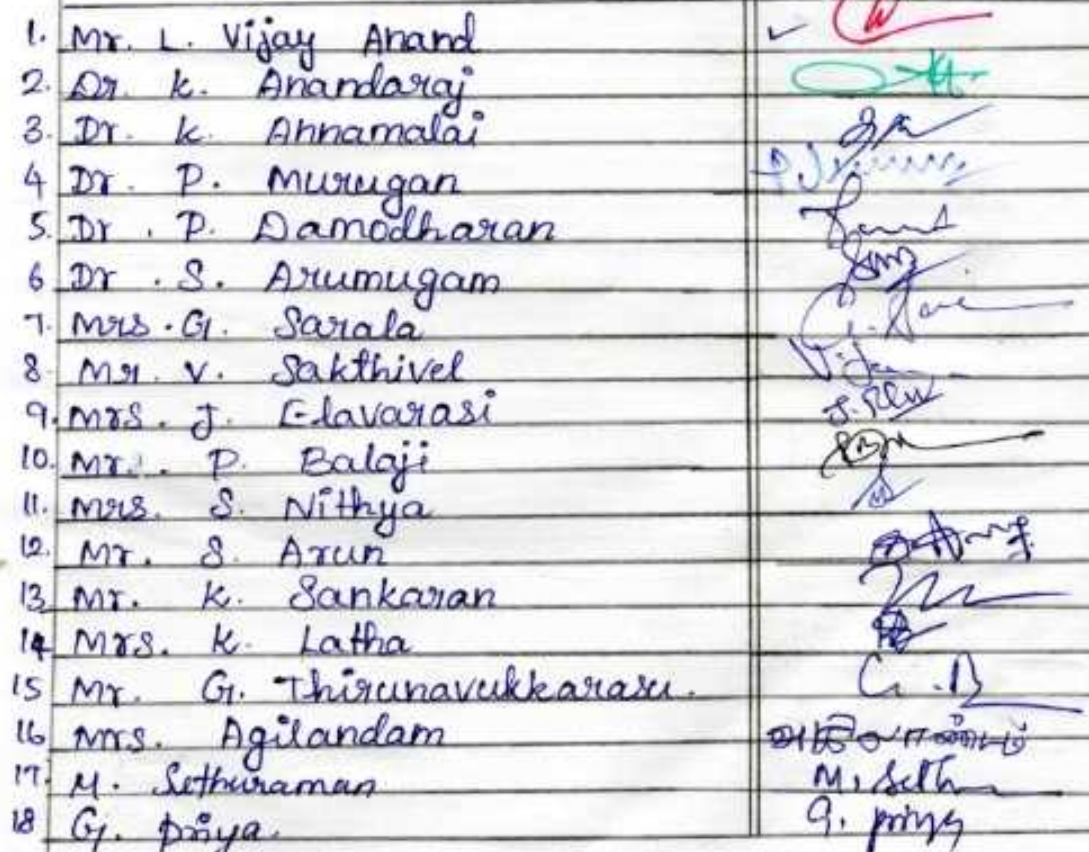 1. Mr. L. Vijay Anand
2. Dr. K. Anandaraj
3. Dr. K. Annamalai
4 Dr. P. Murugan
5. Dr. P. Damodharan
6 Dr. S. Arumugam
7. Mrs. G. Sarala
8 Mr. V. Sakthivel
9. Mrs. J. Elavarasi
10. Mr. P. Balaji
11. Mrs. S. Nithya
12. Mr. S. Arun
13 Mr. K. Sankaran
14 Mrs. K. Latha
15 Mr. G. Thirunavukkarasu.
16 Mrs. Agilandam அகிலாண்டம்
17. M. Sethuraman M. Seth
18 G. Priya. G. priya